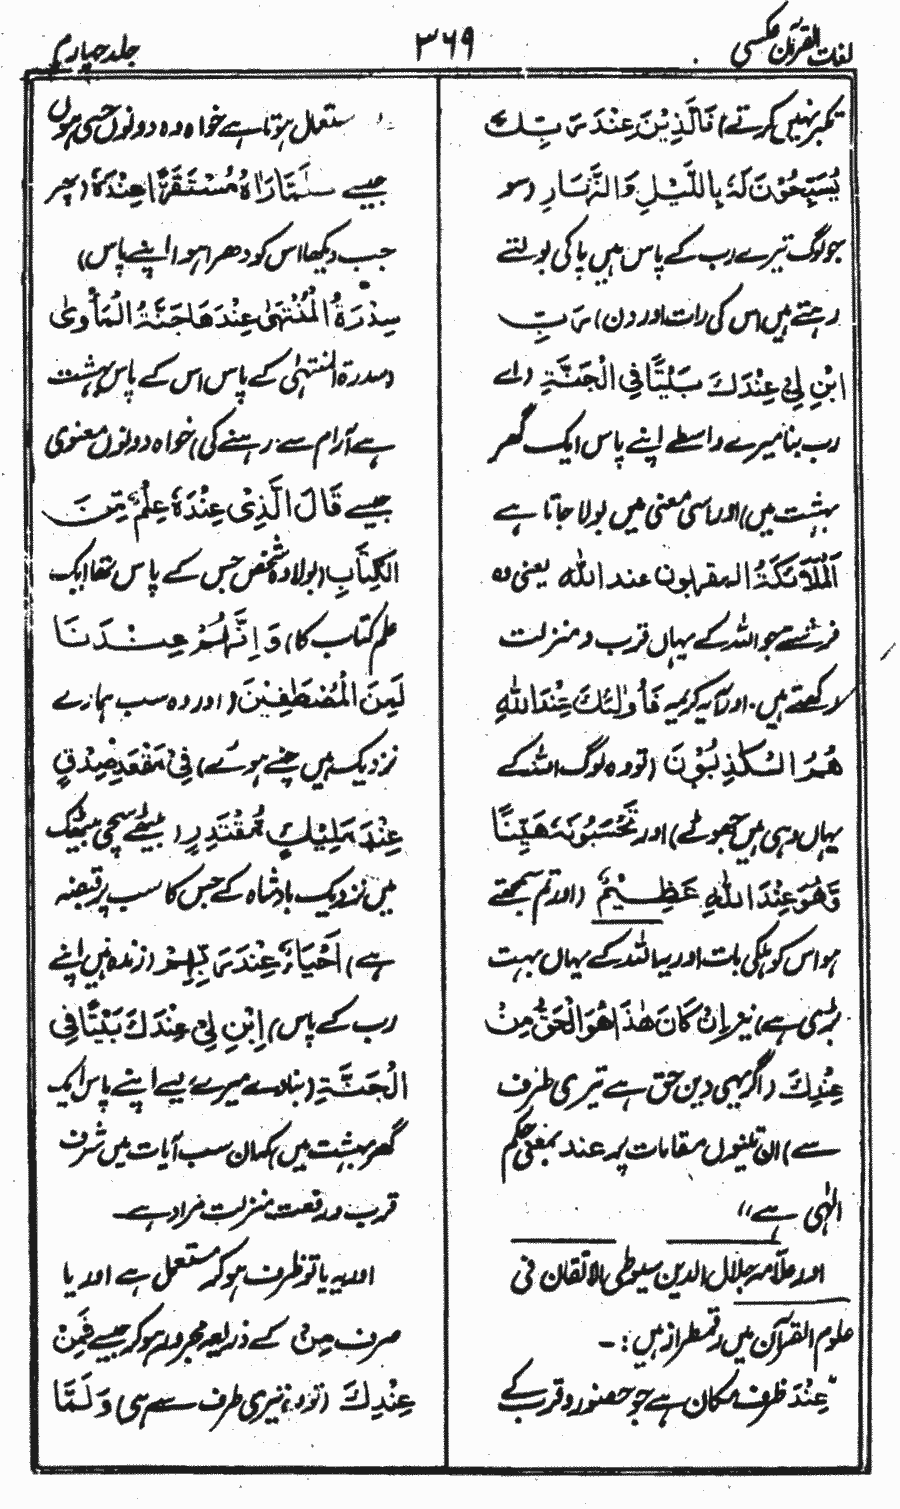 لغات القرآن عکسی
۳۶۹
جلد چہارم
تکبر نہیں کرتے) فَالَّذِيْنَ عِنْدَ رَبِّكَ
يُسَبِّحُوْنَ لَهٗ بِاللَّيْلِ وَالنَّهَارِ (سو
جو لوگ تیرے رب کے پاس ہیں پاکی بولتے
رہتے ہیں اس کی رات اور دن) رَبِّ
ابْنِ لِيْ عِنْدَكَ بَيْتًا فِي الْجَنَّةِ (اے
رب بنا میرے واسطے اپنے پاس ایک گھر
بہشت میں) اور اسی معنی میں بولا جاتا ہے
اَلْمَلَآئِكَةُ المقربون عند اللّٰه یعنی وہ
فرشتے جو اللہ کے یہاں قرب و منزلت
رکھتے ہیں۔ اور آیہ کریمہ فَأُولٰٓئِكَ عِنْدَ اللّٰهِ
هُمُ الْكٰذِبُوْنَ (تو وہ لوگ اللہ کے
یہاں وہی ہیں جھوٹے) اور تَحْسَبُوْنَهٗ هَيِّنًا
وَّهُوَ عِنْدَ اللّٰهِ عَظِيْمٌ (اور تم سمجھتے
ہو اس کو ہلکی بات اور یہ اللہ کے یہاں بہت
بڑی ہے) نیز اِنْ كَانَ هٰذَا هُوَ الْحَقَّ مِنْ
عِنْدِكَ (اگر یہی دین حق ہے تیری طرف
سے) ان تینوں مقامات پر عند بمعنی حکم
الٰہی ہے"
اور علامہ جلال الدین سیوطی الاتقان فی
علوم القرآن میں رقمطراز ہیں :۔
"عِنْدَ ظرف مکان ہے جو حضور و قرب کے
استعمال ہوتا ہے خواہ وہ دونوں حسی ہوں
جیسے فَلَمَّا رَاٰهُ مُسْتَقِرًّا عِنْدَهٗ (پھر
جب دیکھا اس کو دھرا ہوا اپنے پاس)
سِدْرَةِ الْمُنْتَهٰى عِنْدَهَا جَنَّةُ الْمَأْوٰى
(سدرۃ المنتہیٰ کے پاس اس کے پاس بہشت
ہے آرام سے رہنے کی) خواہ دونوں معنوی
جیسے قَالَ الَّذِيْ عِنْدَهٗ عِلْمٌ مِّنَ
الْكِتٰبِ (بولا وہ شخص جس کے پاس تھا ایک
علم کتاب کا) وَاِنَّهُمْ عِنْدَنَا
لَمِنَ الْمُصْطَفَيْنَ (اور وہ سب ہمارے
نزدیک ہیں چنے ہوئے) فِيْ مَقْعَدِ صِدْقٍ
عِنْدَ مَلِيْكٍ مُّقْتَدِرٍ (بیٹھے سچی بیٹھک
میں نزدیک بادشاہ کے جس کا سب پر قبضہ
ہے) اَحْيَآءٌ عِنْدَ رَبِّهِمْ (زندہ ہیں اپنے
رب کے پاس) اِبْنِ لِيْ عِنْدَكَ بَيْتًا فِي
الْجَنَّةِ (بنا دے میرے لیے اپنے پاس ایک
گھر بہشت میں) کہ ان سب آیات میں شرف
قرب و رفعت منزلت مراد ہے۔
اور یہ یا تو ظرف ہو کر مستعمل ہے اور یا
صرف مِنْ کے ذریعہ مجرور ہو کر جیسے فَمِنْ
عِنْدِكَ (تو وہ تیری طرف سے ہے) وَلَمَّا